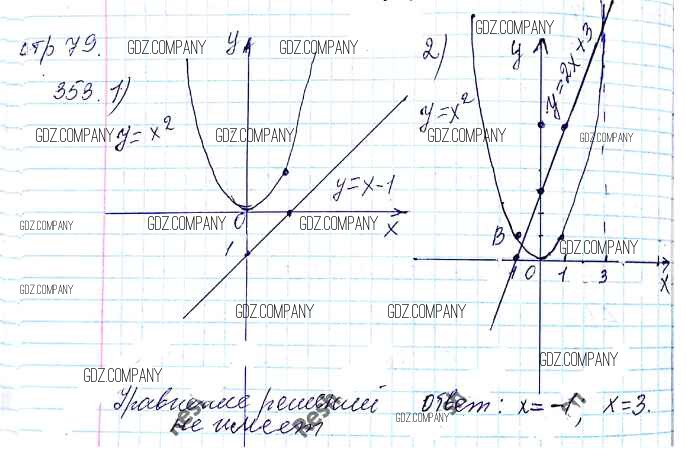 стр 79.
353. 1)
y = x²
y = x - 1
y
x
0
1
Уравнение решений
не имеет
2)
y = x²
y = 2x + 3
y
x
B
0 1 3
Ответ: x = -1, x = 3.
GDZ.COMPANY GDZ.COMPANY GDZ.COMPANY
GDZ.COMPANY GDZ.COMPANY GDZ.COMPANY GDZ.COMPANY
GDZ.COMPANY GDZ.COMPANY GDZ.COMPANY GDZ.COMPANY
GDZ.COMPANY GDZ.COMPANY GDZ.COMPANY
GDZ.COMPANY GDZ.COMPANY
GDZ.COMPANY